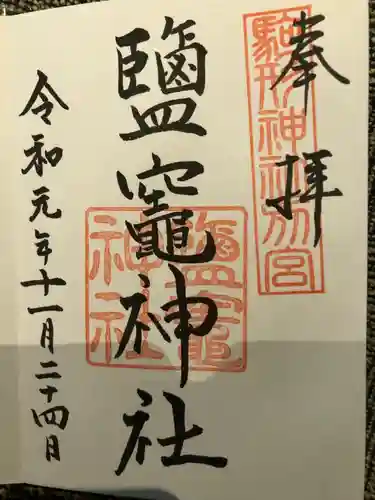 奉拝
駒形神社別宮
鹽竈神社
鹽竈神社
令和元年十一月二十四日